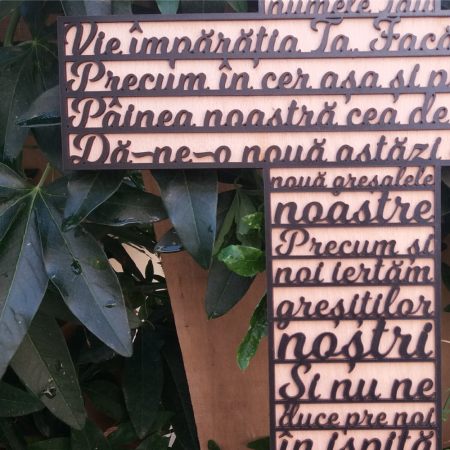 numele Tău
Vie împărăția Ta, Facă
Precum în cer așa și p
Pâinea noastră cea de
Dă-ne-o nouă astăzi
nouă greșalele
noastre
Precum și
noi iertăm
greșiților
noștri
Și nu ne
duce pre noi
în ispită